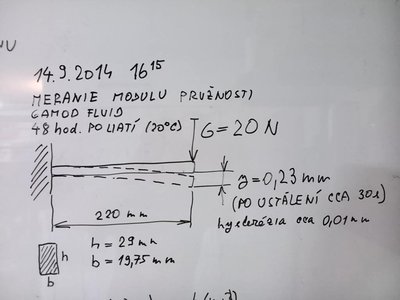 14.9.2014 16¹⁵
MERANIE MODULU PRUŽNOSTI
GAMOD FLUID
48 hod. PO LIATÍ (20°C)
G = 20 N
y = 0,23 mm
(PO USTÁLENÍ CCA 30s)
hysterézia cca 0,01 mm
220 mm
h = 29 mm
b = 19,75 mm
h
b